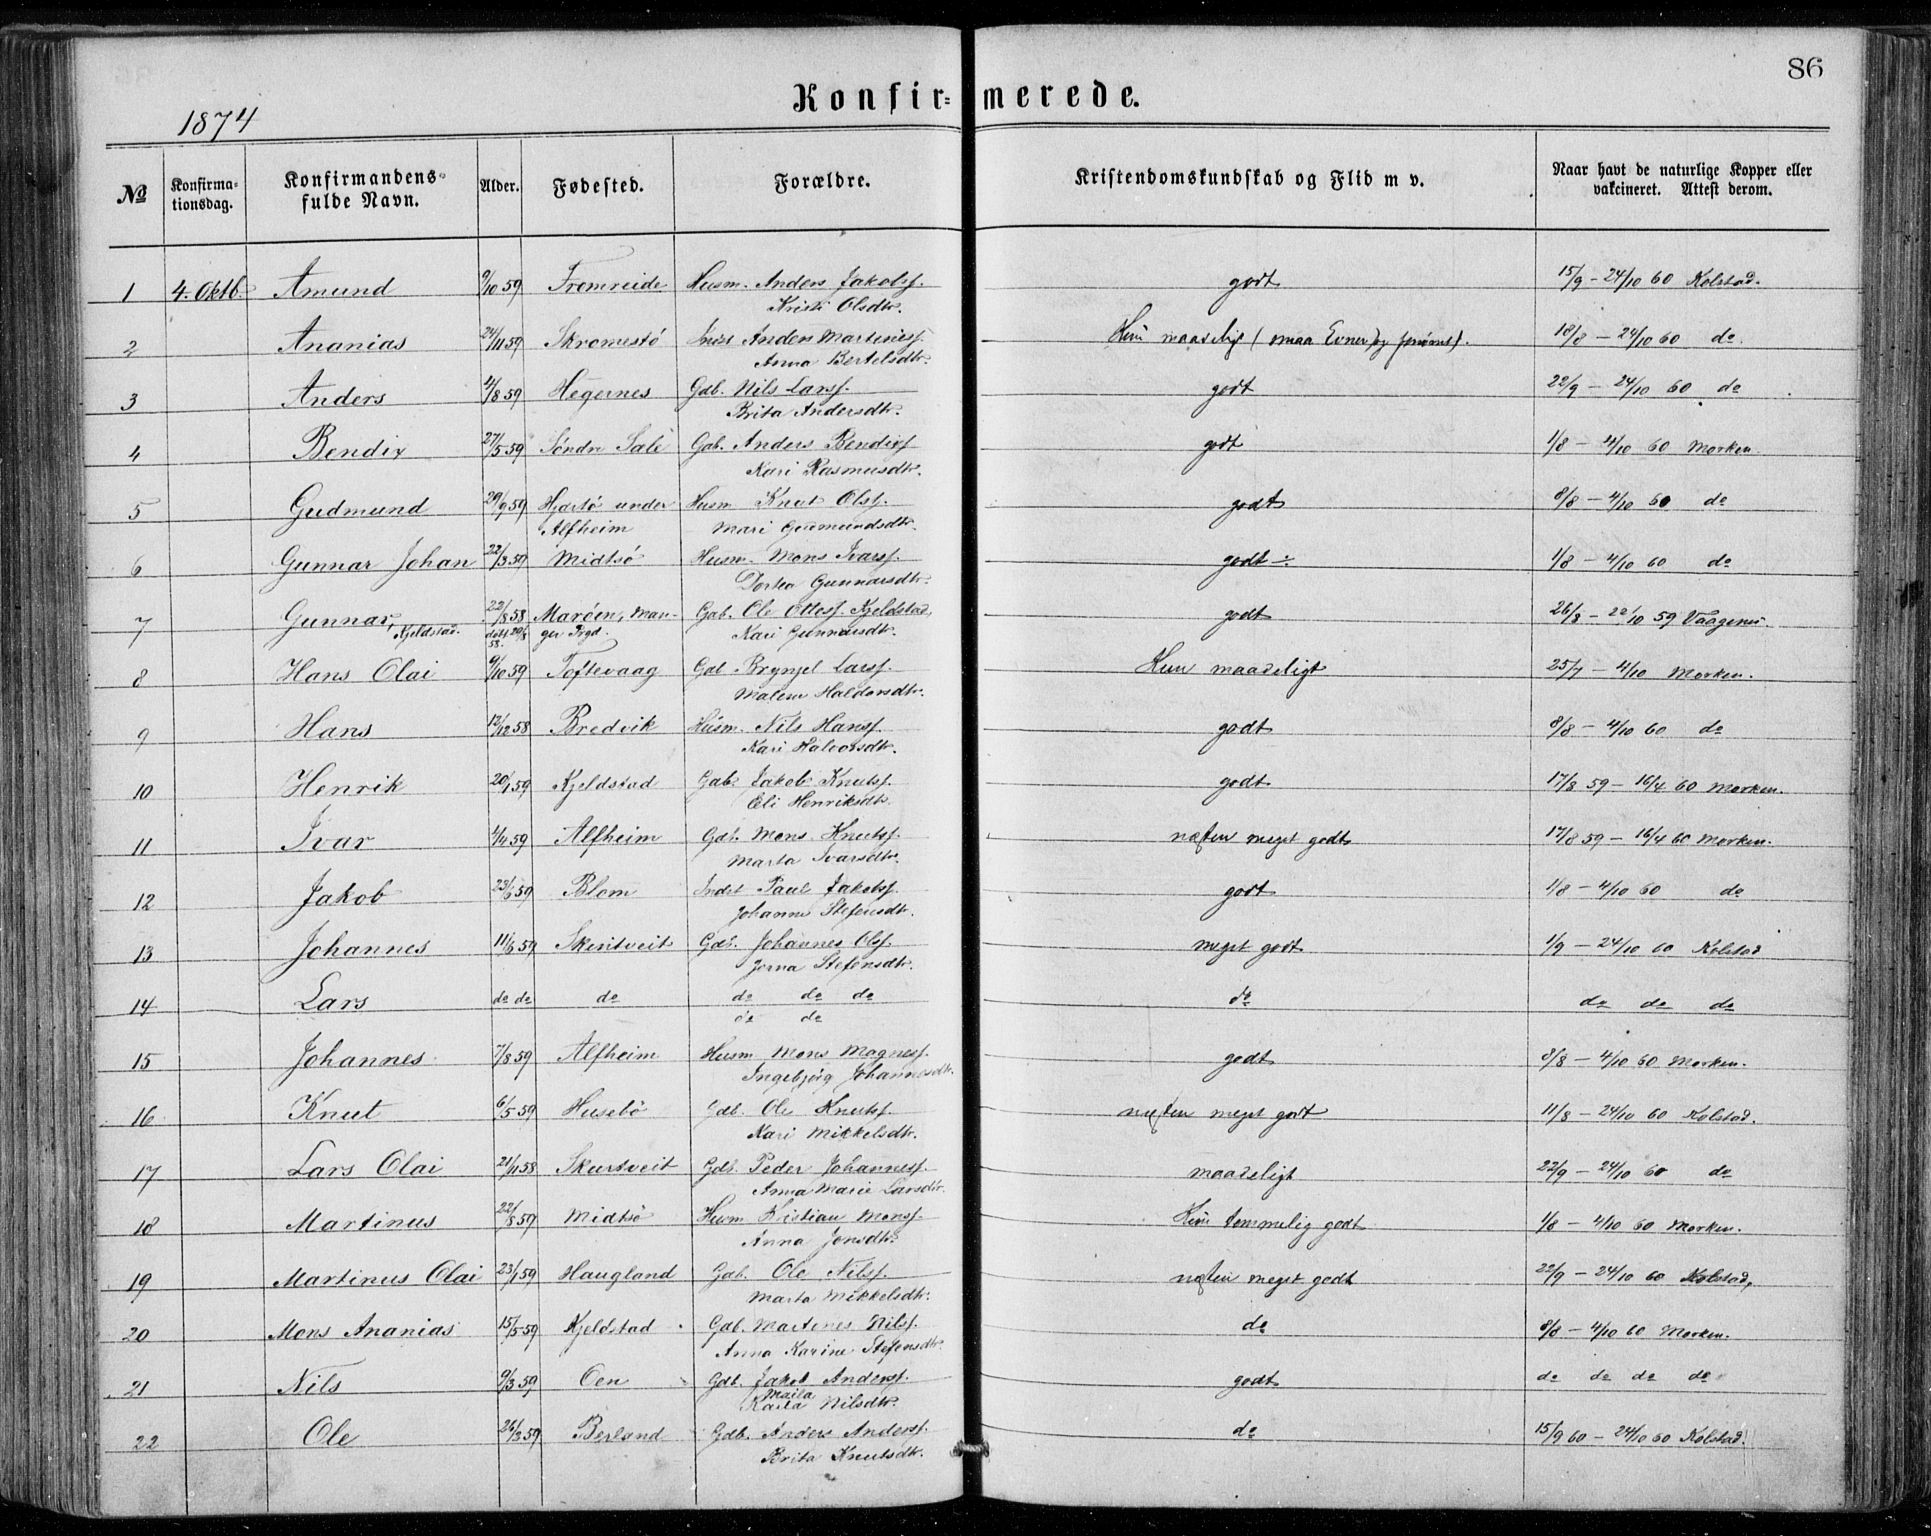 86
Konfir- merede.
1874
№ Konfirma-tionsdag. Konfirmandens fulde Navn. Alder. Fødested. Forældre. Kristendomskundskab og Flid m v. Naar havt de naturlige Kopper eller vakcineret. Attest derom.
1 4. Oktb. Amund 9/10 59 Fromreide Husm. Anders Jakobsf. godt 15/9 - 24/10 60 Kolstad.
Kristi Olsdtr.
2 Ananias 24/11 59 Skromestø Anders Martinesf. maadeligt (smaa Evner) og 18/8 - 24/10 60 do.
Anna Bertelsdtr.
3 Anders 4/8 59 Hegernes Gdb. Nils Larsf. godt 22/9 - 24/10 60 do
Brita Andersdtr.
4 Bendix 27/5 59 Søndre Sale Gab. Anders Bendixf godt 1/8 - 4/10 60 Morken.
Kari Rasmusdtr.
5 Gudmund 29/9 59 Hjartø under Husm Knut Olsf. godt 8/8 - 4/10 60 do
Alfheim Mari Gudmundsdtr.
6 Gunnar Johan 22/3 59 Midtsø Husm. Mons Ivarsf. godt ÷ 1/8 - 4/10 60 do
Dortea Gunnarsdtr.
7 Gunnar, 22/8 58 Marøen, Man- Gab. Ole Ottesf. Kjeldstad, godt 26/8 - 22/10 59 Vaagenes.
Kjeldstad. 58. ger Prgd. Kari Gunnarsdtr.
8 Hans Olai 9/10 59 Toftevaag Gdb. Brynjel Larsf. Kun maadeligt 25/7 - 4/10 Morken.
Malene Haldorsdtr.
9 Hans 12/12 58 Bredvik Husm. Nils Hansf. godt 8/8 - 4/10 60 do
Kari Halvorsdtr.
10 Henrik 20/1 59 Kjeldstad Gab. Jakob Knutsf. godt 17/8 59 - 16/4 60 Morken.
Eli Henriksdtr.
11 Ivar 4/4 59 Alfheim Gdb. Mons Knutsf. næsten meget godt 17/8 59 - 16/4 60 Morken.
Marta Ivarsdtr.
12 Jakob 23/6 59 Blom Inds Paul Jakobsf. godt 1/8 - 4/10 60 do
Johanne Stefensdtr.
13 Johannes 11/6 59 Skurtveit Gdb. Johannes Olsf. meget godt 1/9 - 24/10 60 Kolstad
Jorna Stefensdtr.
14 Lars do do do do do do do do do do
do do
15 Johannes 7/8 59 Alfheim Husm Mons Magnesf. godt 8/8 - 4/10 60 Morken.
Ingebjørg Johannesdtr.
16 Knut 6/5 59 Husebø Gdb. Ole Knutsf. næsten meget godt 11/8 - 24/10 60 Kolstad.
Kari Mikkelsdtr.
17 Lars Olai 21/11 58 Skurtveit Gdb. Peder Johannesf. maadeligt 22/9 - 24/10 60 do
Anna Marie Larsdtr.
18 Martinus 22/8 59 Midtsø Husm Kristian Monsf. Kun temmelig godt 1/8 - 4/10 60 Morken.
Anna Jonsdtr.
19 Martinus Olai 23/1 59 Haugland Gab. Ole Nilsf. næsten meget godt 22/9 - 24/10 60 Kolstad,
Marta Mikkelsdtr.
20 Mons Ananias 15/5 59 Kjeldstad Gab. Martines Nilsf. do 8/8 - 4/10 60 Morken.
Anna Karine Stefensdtr.
21 Nils 9/3 59 Oen Gdb. Jakob Andersf. godt do do do do
Maila
Nilsdtr.
22 Ole 26/3 59 Berland Gdb. Anders Andersf. do 15/9 60 - 24/10 60 Kolstad.
Brita Knutsdtr.